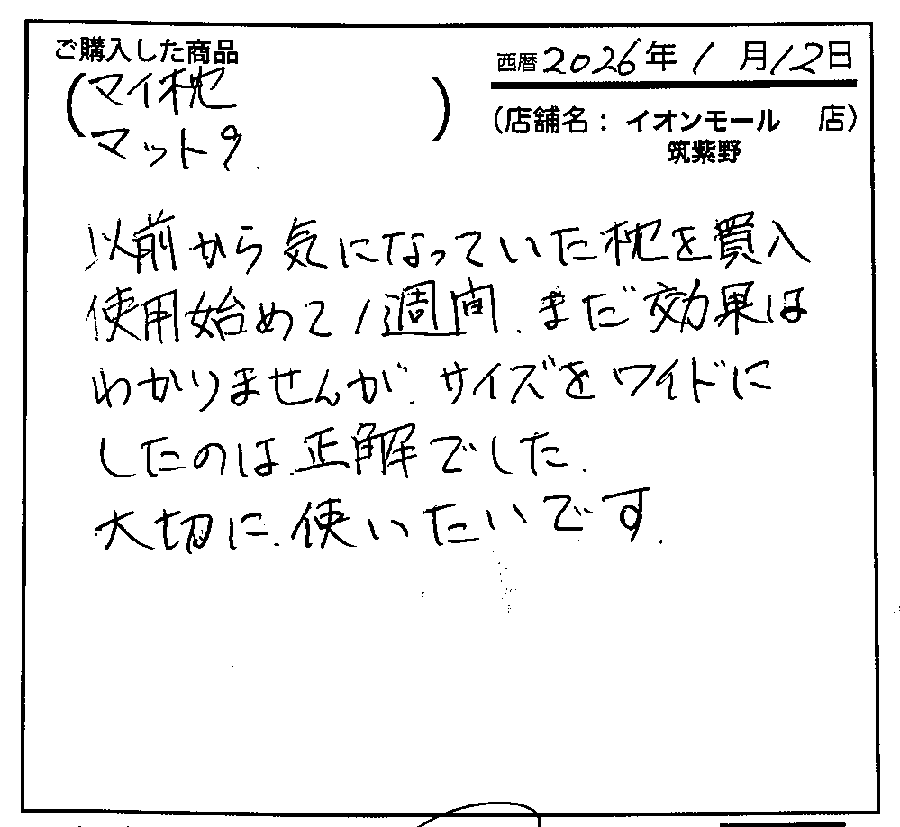 ご購入した商品
西暦 2026年 1月12日
(マイ枕
マット9)
(店舗名： イオンモール 店)
筑紫野
以前から気になっていた枕を買入
使用始めて1週間. まだ効果は
わかりませんが. サイズをワイドに
したのは正解でした.
大切に.使いたいです.